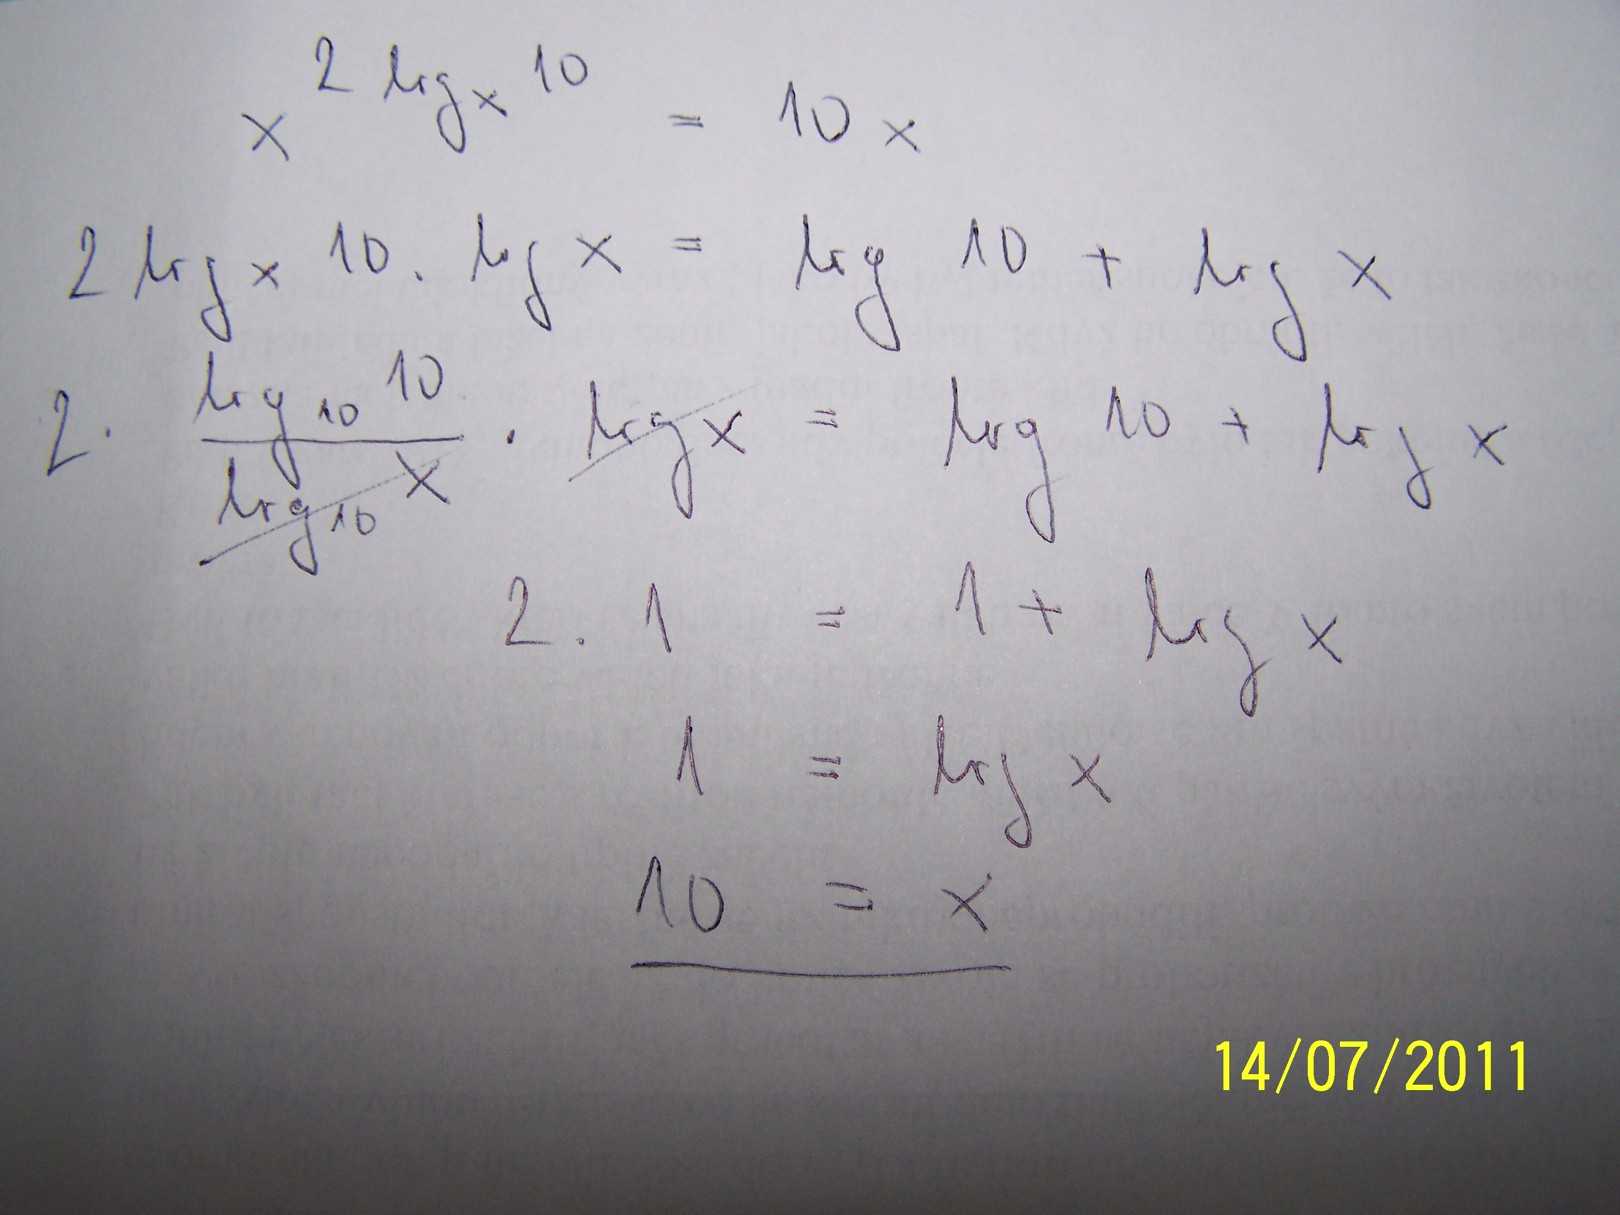 x^{2 log_x 10} = 10 x
2 log_x 10 . log x = log 10 + log x
2 . \frac{log_{10} 10}{log_{10} x} . log x = log 10 + log x
2 . 1 = 1 + log x
1 = log x
10 = x
14/07/2011